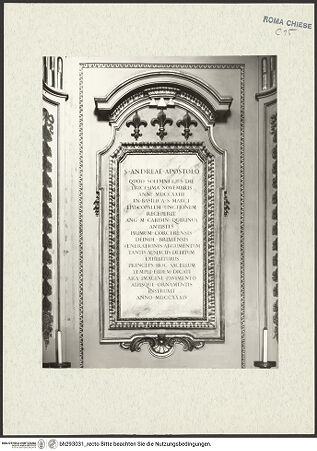 ROMA CHIESE
C 15
S·ANDREAE·APOSTOLO
QVOD SOLEMNI EIVS DIE
TRICESIMA NOVEMBRIS
ANNI MDCCXXIII
IN BASILICA S MARCI
EPISCOPALEM VNCTIONEM
RECEPERIT
ANG M CARDIN QVIRINVS
ANTISTES
PRIMVM CORCIRENSIS
DEINDE BRIXIENSIS
VENERATIONIS ARGVMENTVM
TANTIS AVSPICIIS DEBITVM
EXHIBITVRVS
PRINCIPIS HOC SACELLVM
TEMPLI EIDEM DICATI
ARA IMAGINE PAVIMENTO
ALIISQVE ORNAMENTIS
INSTRVXIT
ANNO MDCCXXXIV
bh293031_recto Bitte beachten Sie die Nutzungsbedingungen.